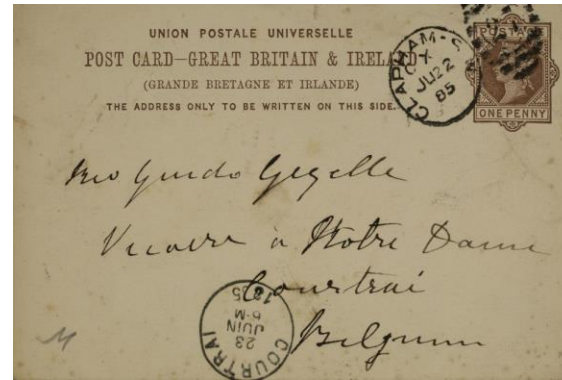 UNION POSTALE UNIVERSELLE
POST CARD—GREAT BRITAIN & IRELAND
(GRANDE BRETAGNE ET IRLANDE)
THE ADDRESS ONLY TO BE WRITTEN ON THIS SIDE.
CLAPHAM-S.
CX
JU22
85
POSTAGE
ONE PENNY
Guido Gezelle
Vicaire à Notre Dame
Courtrai
Belgium
COURTRAI
23
JUIN
6-M
1885
M